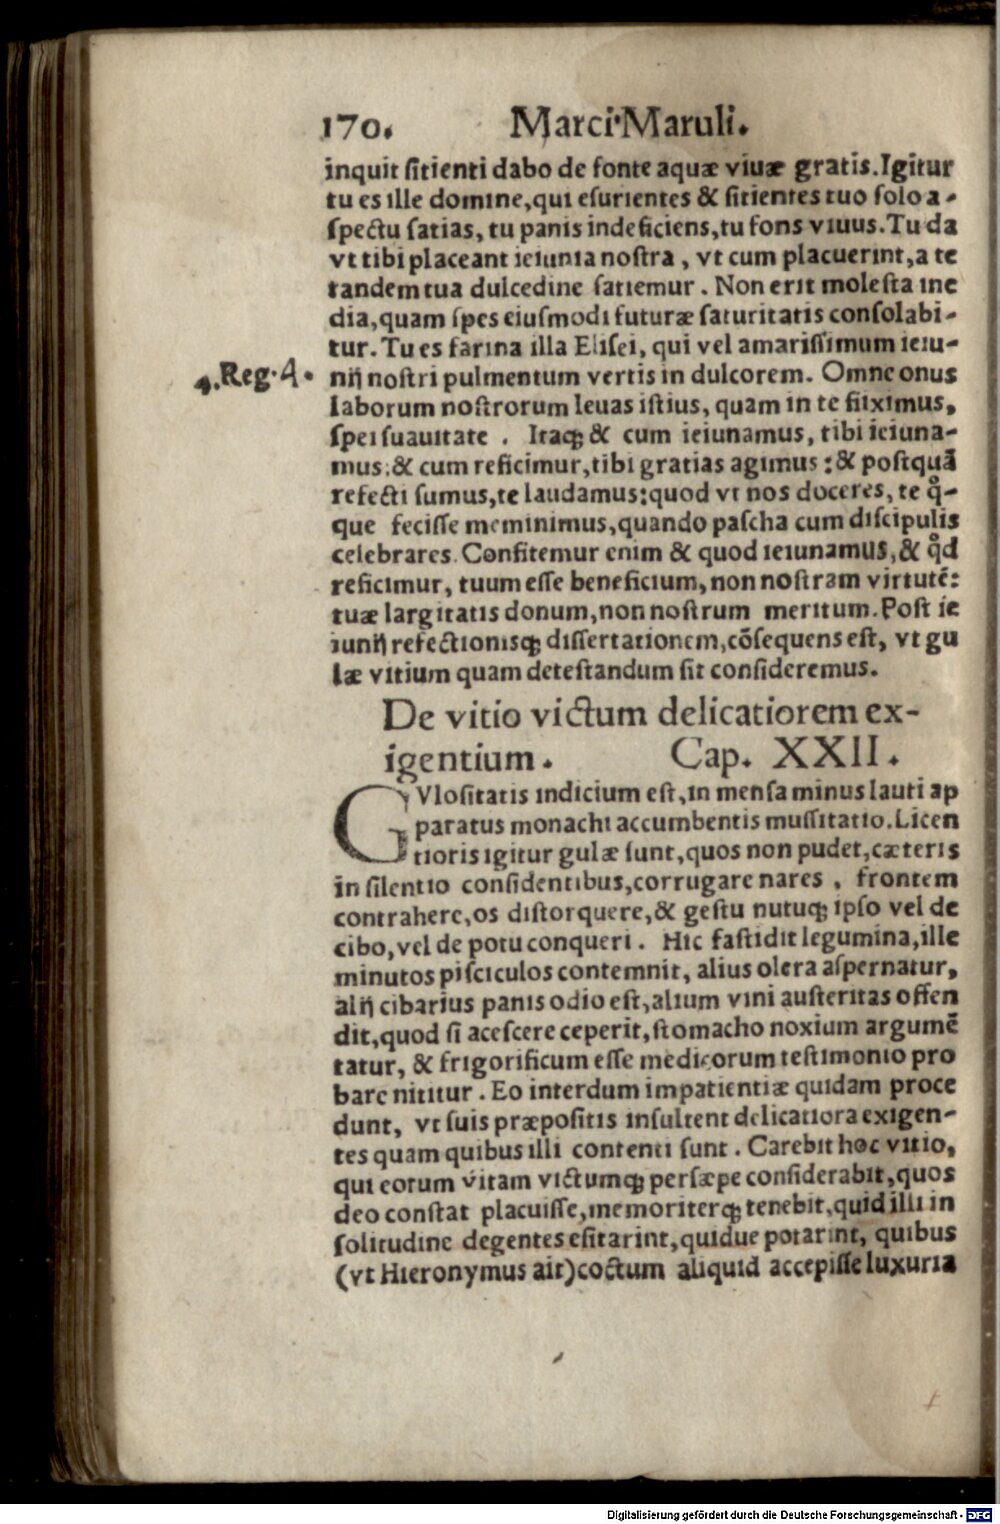 170. Marci Maruli.
inquit ſitienti dabo de fonte aquæ viuæ gratis. Igitur
tu es ille domine, qui eſurientes & ſitientes tuo ſolo a-
ſpectu ſatias, tu panis indeficiens, tu fons viuus. Tu da
vt tibi placeant ieiunia noſtra, vt cum placuerint, a te
tandem tua dulcedine ſatiemur. Non erit moleſta ine
dia, quam ſpes eiuſmodi futuræ ſaturitatis conſolabi-
tur. Tu es farina illa Eliſei, qui vel amariſſimum ieiu-
4. Reg. 4.
nij noſtri pulmentum vertis in dulcorem. Omne onus
laborum noſtrorum leuas iſtius, quam in te fiiximus,
ſpei ſuauitate. Itaqꝫ & cum ieiunamus, tibi ieiuna-
mus: & cum reficimur, tibi gratias agimus: & poſtquã
refecti ſumus, te laudamus: quod vt nos doceres, te q̊-
que feciſſe meminimus, quando paſcha cum diſcipulis
celebrares. Confitemur enim & quod ieiunamus, & q̊d
reficimur, tuum eſſe beneficium, non noſtram virtutẽ:
tuæ largitatis donum, non noſtrum meritum. Poſt ie
iunij refectionisqꝫ diſſertationem, cõſequens eſt, vt gu
læ vitium quam deteſtandum ſit conſideremus.
De vitio victum delicatiorem ex-
igentium. Cap. XXII.
GVloſitatis indicium eſt, in menſa minus lauti ap
paratus monachi accumbentis muſſitatio. Licen
tioris igitur gulæ ſunt, quos non pudet, cæteris
in ſilentio conſidentibus, corrugare nares, frontem
contrahere, os diſtorquere, & geſtu nutuqꝫ ipſo vel de
cibo, vel de potu conqueri. Hic faſtidit legumina, ille
minutos piſciculos contemnit, alius olera aſpernatur,
alij cibarius panis odio eſt, alium vini auſteritas offen
dit, quod ſi aceſcere ceperit, ſtomacho noxium argumẽ
tatur, & frigorificum eſſe medicorum teſtimonio pro
bare nititur. Eo interdum impatientiæ quidam proce
dunt, vt ſuis præpoſitis inſultent delicatiora exigen-
tes quam quibus illi contenti ſunt. Carebit hoc vitio,
qui eorum vitam victumqꝫ perſæpe conſiderabit, quos
deo conſtat placuiſſe, memoriterqꝫ tenebit, quid illi in
ſolitudine degentes eſitarint, quidue potarint, quibus
(vt Hieronymus ait) coctum aliquid accepiſſe luxuria
Digitalisierung gefördert durch die Deutsche Forschungsgemeinschaft - DFG